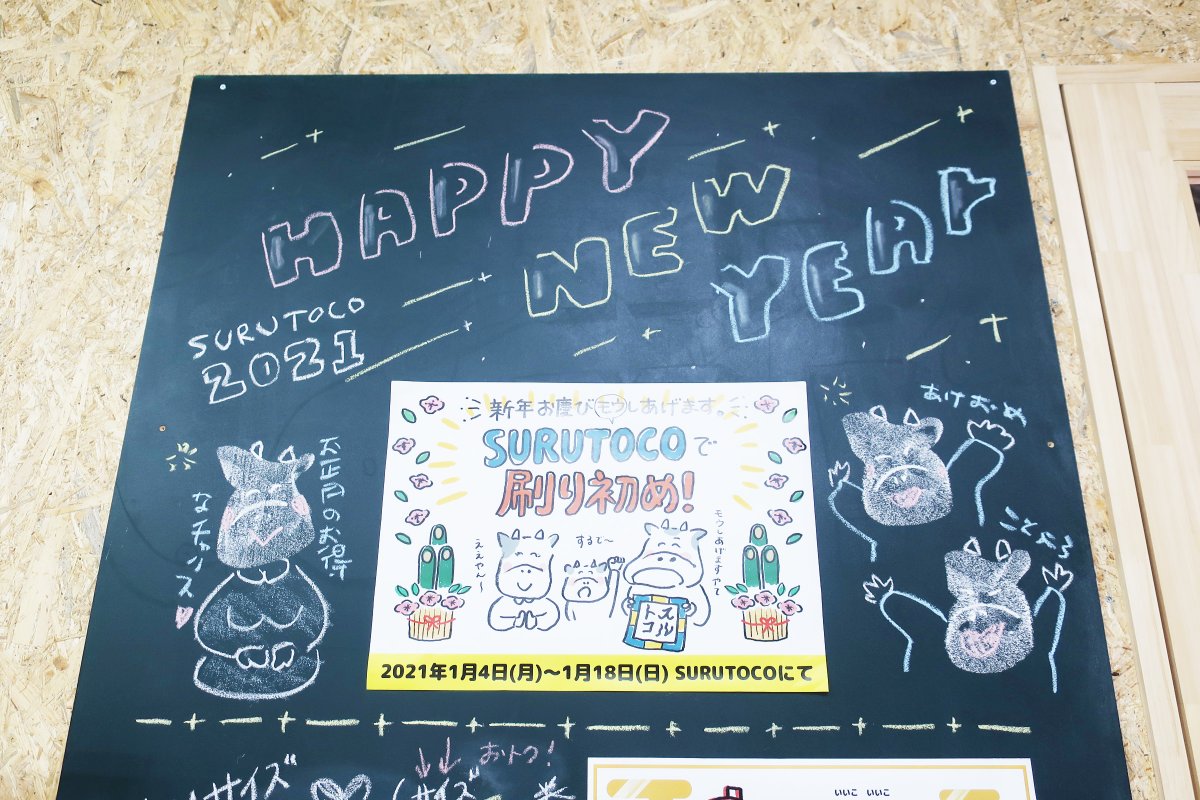 HAPPY
NEW
YEAR
SURUTOCO
2021
新年お慶びモウしあげます。
SURUTOCOで
刷り初め!
ええやん〜
するで〜
モウしあげますやで
トスコル
2021年1月4日(月)〜1月18日(日) SURUTOCOにて
お正月のお得
なチャンス
あけおめ
ことよろ
サイズ
おトク!
サイズ
いいこ いいこ